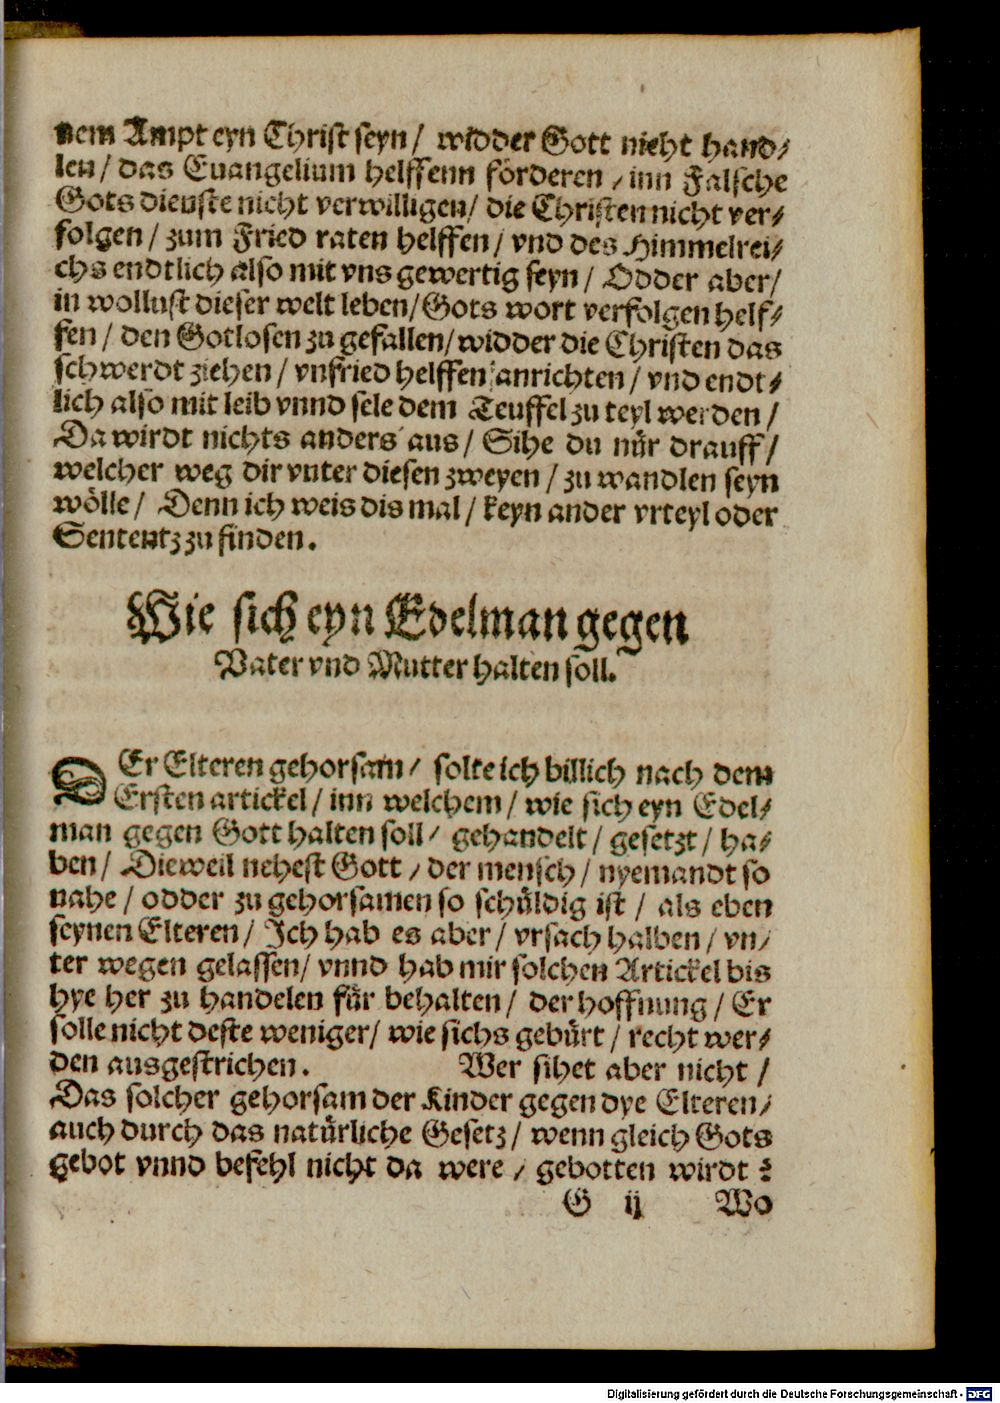 nem Ampt eyn Christ seyn/ widder Gott nicht hand⸗
len/ das Euangelium helffenn förderen/ inn Falsche
Gots dienste nicht verwilligen/ die Christen nicht ver⸗
folgen/ zum Fried raten helffen/ vnd des Himmelrei⸗
chs endtlich also mit vns gewertig seyn/ Odder aber/
in wollust dieser welt leben/ Gots wort verfolgen helf⸗
fen/ den Gotlosen zu gefallen/ widder die Christen das
schwerdt ziehen/ vnfried helffen anrichten/ vnd endt⸗
lich also mit leib vnnd sele dem Teuffel zu teyl werden/
Da wirdt nichts anders aus/ Sihe du nůr drauff/
welcher weg dir vnter diesen zweyen/ zu wandlen seyn
wölle/ Denn ich weis dis mal/ keyn ander vrteyl oder
Sententz zu finden.
Wie sich eyn Edelman gegen
Vater vnd Mutter halten soll.
DEr Elteren gehorsam/ solte ich billich nach dem
Ersten artickel/ inn welchem/ wie sich eyn Edel⸗
man gegen Gott halten soll/ gehandelt/ gesetzt/ ha⸗
ben/ Dieweil nehest Gott/ der mensch/ nyemandt so
nahe/ odder zu gehorsamen so schůldig ist/ als eben
seynen Elteren/ Ich hab es aber/ vrsach halben/ vn⸗
ter wegen gelassen/ vnnd hab mir solchen Artickel bis
hye her zu handelen fůr behalten/ der hoffnung/ Er
solle nicht deste weniger/ wie sichs gebůrt/ recht wer⸗
den ausgestrichen. Wer sihet aber nicht/
Das solcher gehorsam der Kinder gegen dye Elteren/
auch durch das natůrliche Gesetz/ wenn gleich Gots
gebot vnnd befehl nicht da were/ gebotten wirdt?
G ij Wo
Digitalisierung gefördert durch die Deutsche Forschungsgemeinschaft - DFG